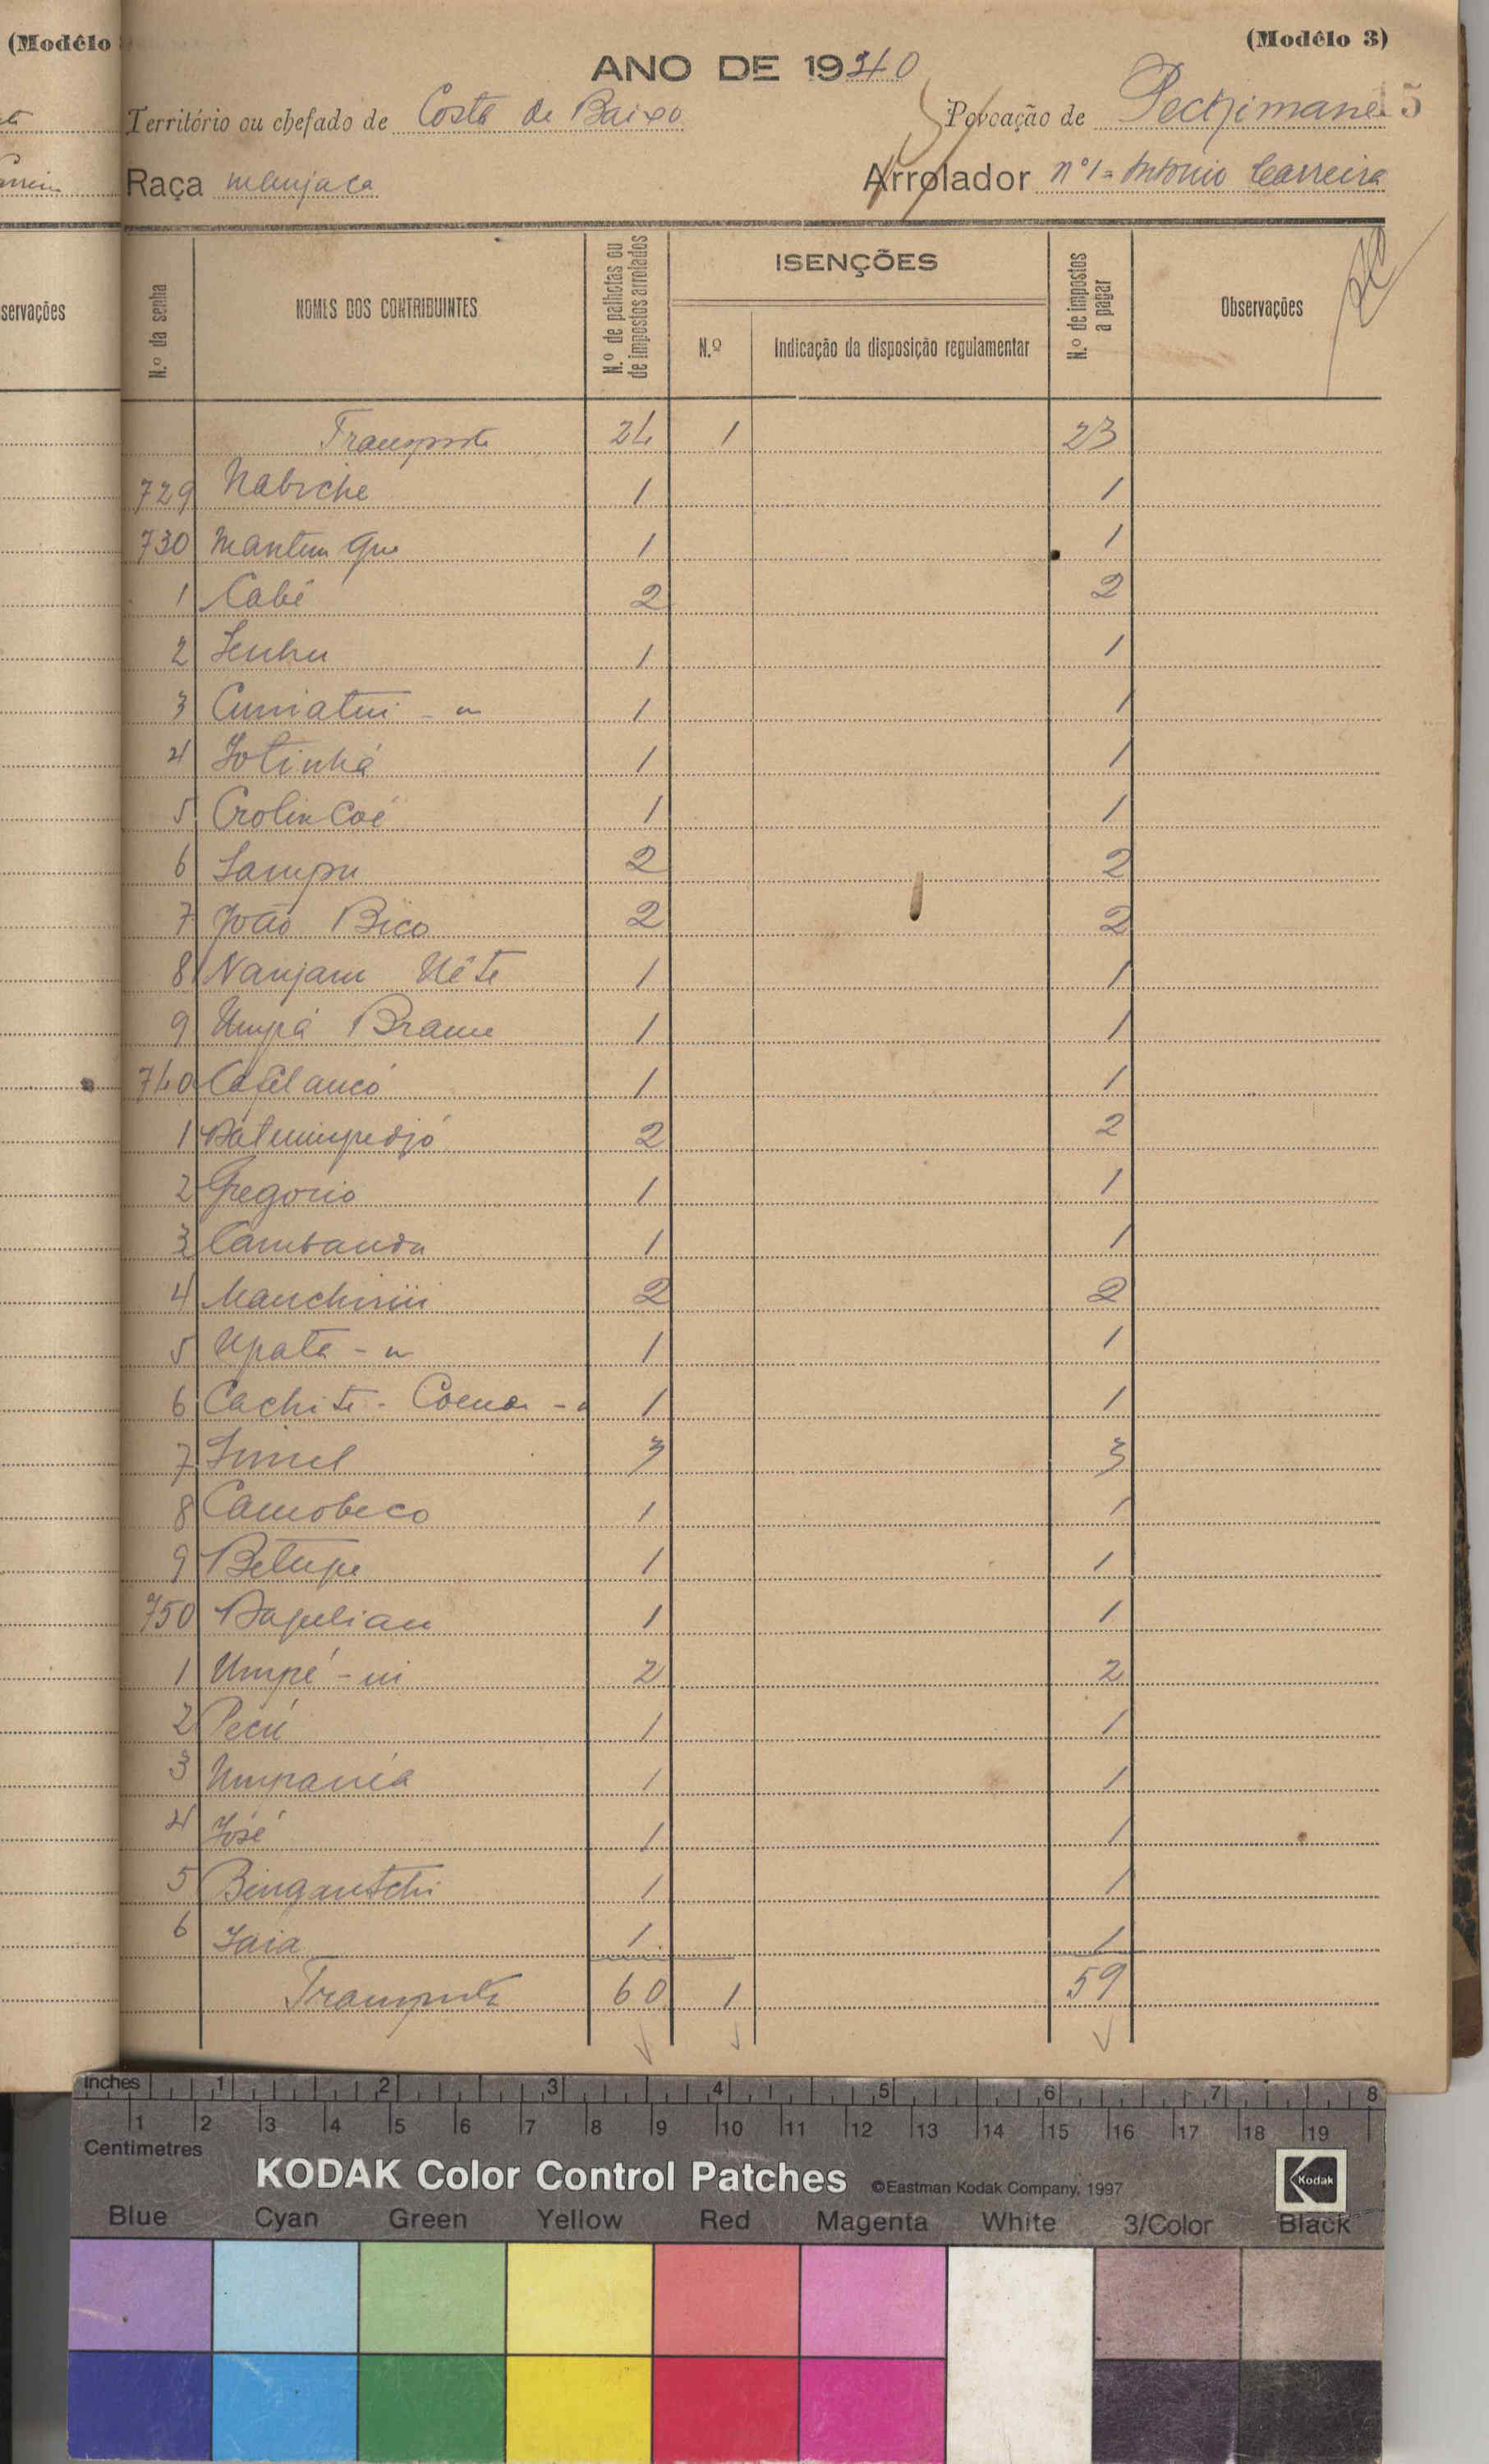 (Modêlo
(Modêlo 3)
ANO DE 1940
Território ou chefado de Costa de Baixo
Povoação de Pechimane
15
Raça manjaca
Arrolador nº1 = António Carreira
servações
N.º da senha
NOMES DOS CONTRIBUINTES
N.º de palhotas ou de impostos arrolados
ISENÇÕES
N.º
Indicação da disposição regulamentar
N.º de impostos a pagar
Observações
Transporte 24 1 23
729 Nabiche 1 1
730 Mantum Que 1 1
1 Cabé 2 2
2 1 1
3 1 1
4 1 1
5 Crolin Coé 1 1
6 Sampu 2 2
7 João Bico 2 2
8 Nanjam Uéte 1 1
9 Umpá Brame 1 1
740 1 1
1 2 2
2 Gregorio 1 1
3 1 1
4 2 2
5 Upata - u 1 1
6 Cachite - 1 1
7 3 3
8 Camobeco 1 1
9 Betupe 1 1
750 1 1
1 Umpé - ui 2 2
2 Pecú 1 1
3 1 1
4 José 1 1
5 Bingantchi 1 1
6 Jaia 1 1
Transporte 60 1 59
inches 1 2 3 4 5 6 7 8
1 2 3 4 5 6 7 8 9 10 11 12 13 14 15 16 17 18 19
Centimetres
KODAK Color Control Patches ©Eastman Kodak Company, 1997
Kodak
Blue Cyan Green Yellow Red Magenta White 3/Color Black